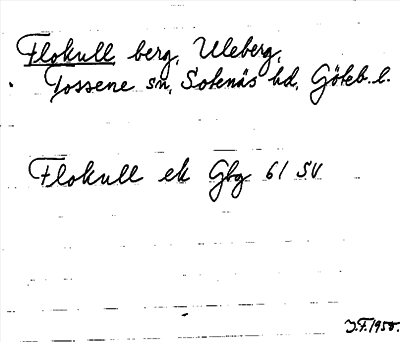 Flokull berg, Uleberg,
Tossene sn, Sotenäs hd, Göteb. l.
Flokull ek Gbg 61 SV
J.F. 1958.